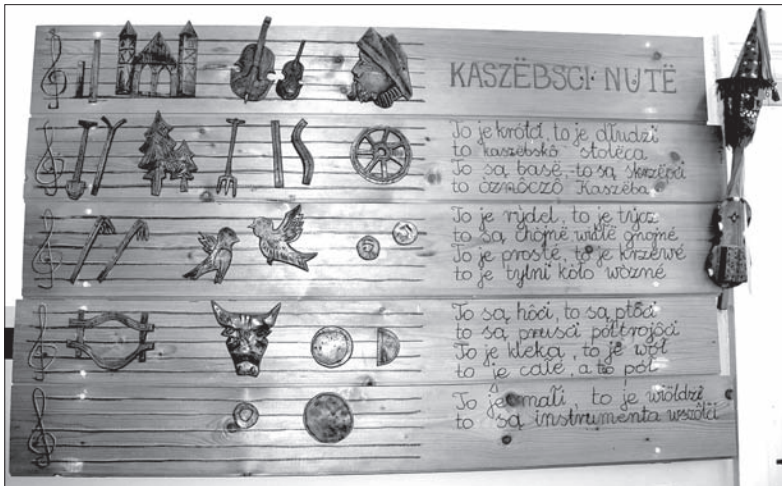 KASZËBSCI NUTË
To je krótci, to je dłudzi
to kaszëbskô stolëca
To są basë, to są skrzëpci
to òznôczô Kaszëba
To je rydel, to je
to są chójnë, widłë gnojné
To je prosté, to je krzëwé
to je tylni kòło wòzné
To są hôci, to są ptôci
to są prusci półtrojôci
To je kleka, to je wół
to je całé, a to pół
To je małi, to je wiôldzi
to są instrumenta wszëtci